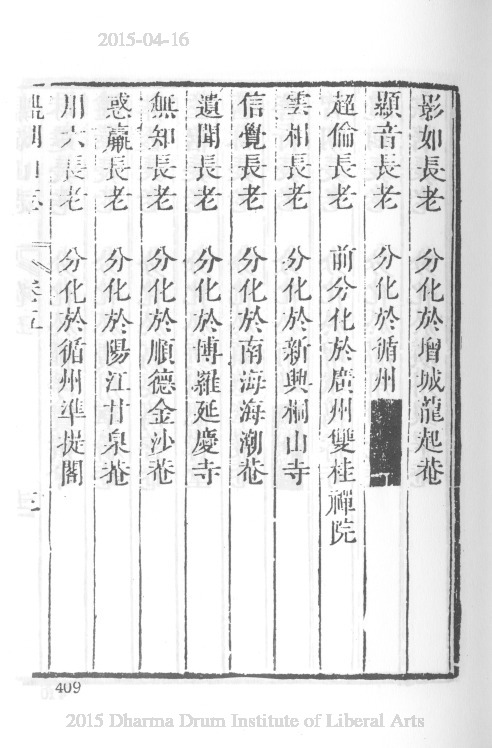 2015-04-16
影如長老 分化於增城龍起菴
顯音長老 分化於循州
超倫長老 前分化於廣州雙桂禪院
雲相長老 分化於新興桐山寺
信覺長老 分化於南海海潮菴
遺聞長老 分化於博羅延慶寺
無知長老 分化於順德金沙菴
惑贏長老 分化於陽江甘泉菴
用大長老 分化於循州準提閣
鼎湖山志 卷五 三
409
2015 Dharma Drum Institute of Liberal Arts